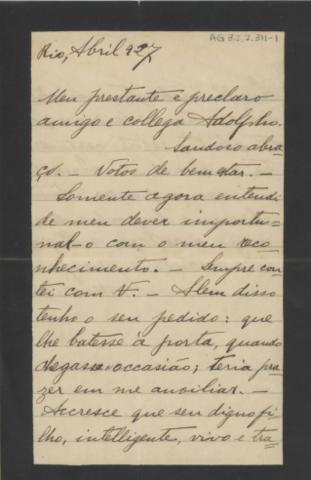 AG 3.2.2.311-1
Rio, Abril 927
Meu prestante e preclaro
amigo e collega Adolpho.
Saudoso abra=
ço. — Votos de bem estar. —
Somente agora entendi
de meu dever importu=
nal-o com o meu reco=
nhecimento. — Sempre con=
tei com V. — Alem disso
tenho o seu pedido: que
lhe batesse á porta, quando
chegasse occasião; teria pra=
zer em me auxiliar. —
Accresce que seu digno fi=
lho, intelligente, vivo e tra=